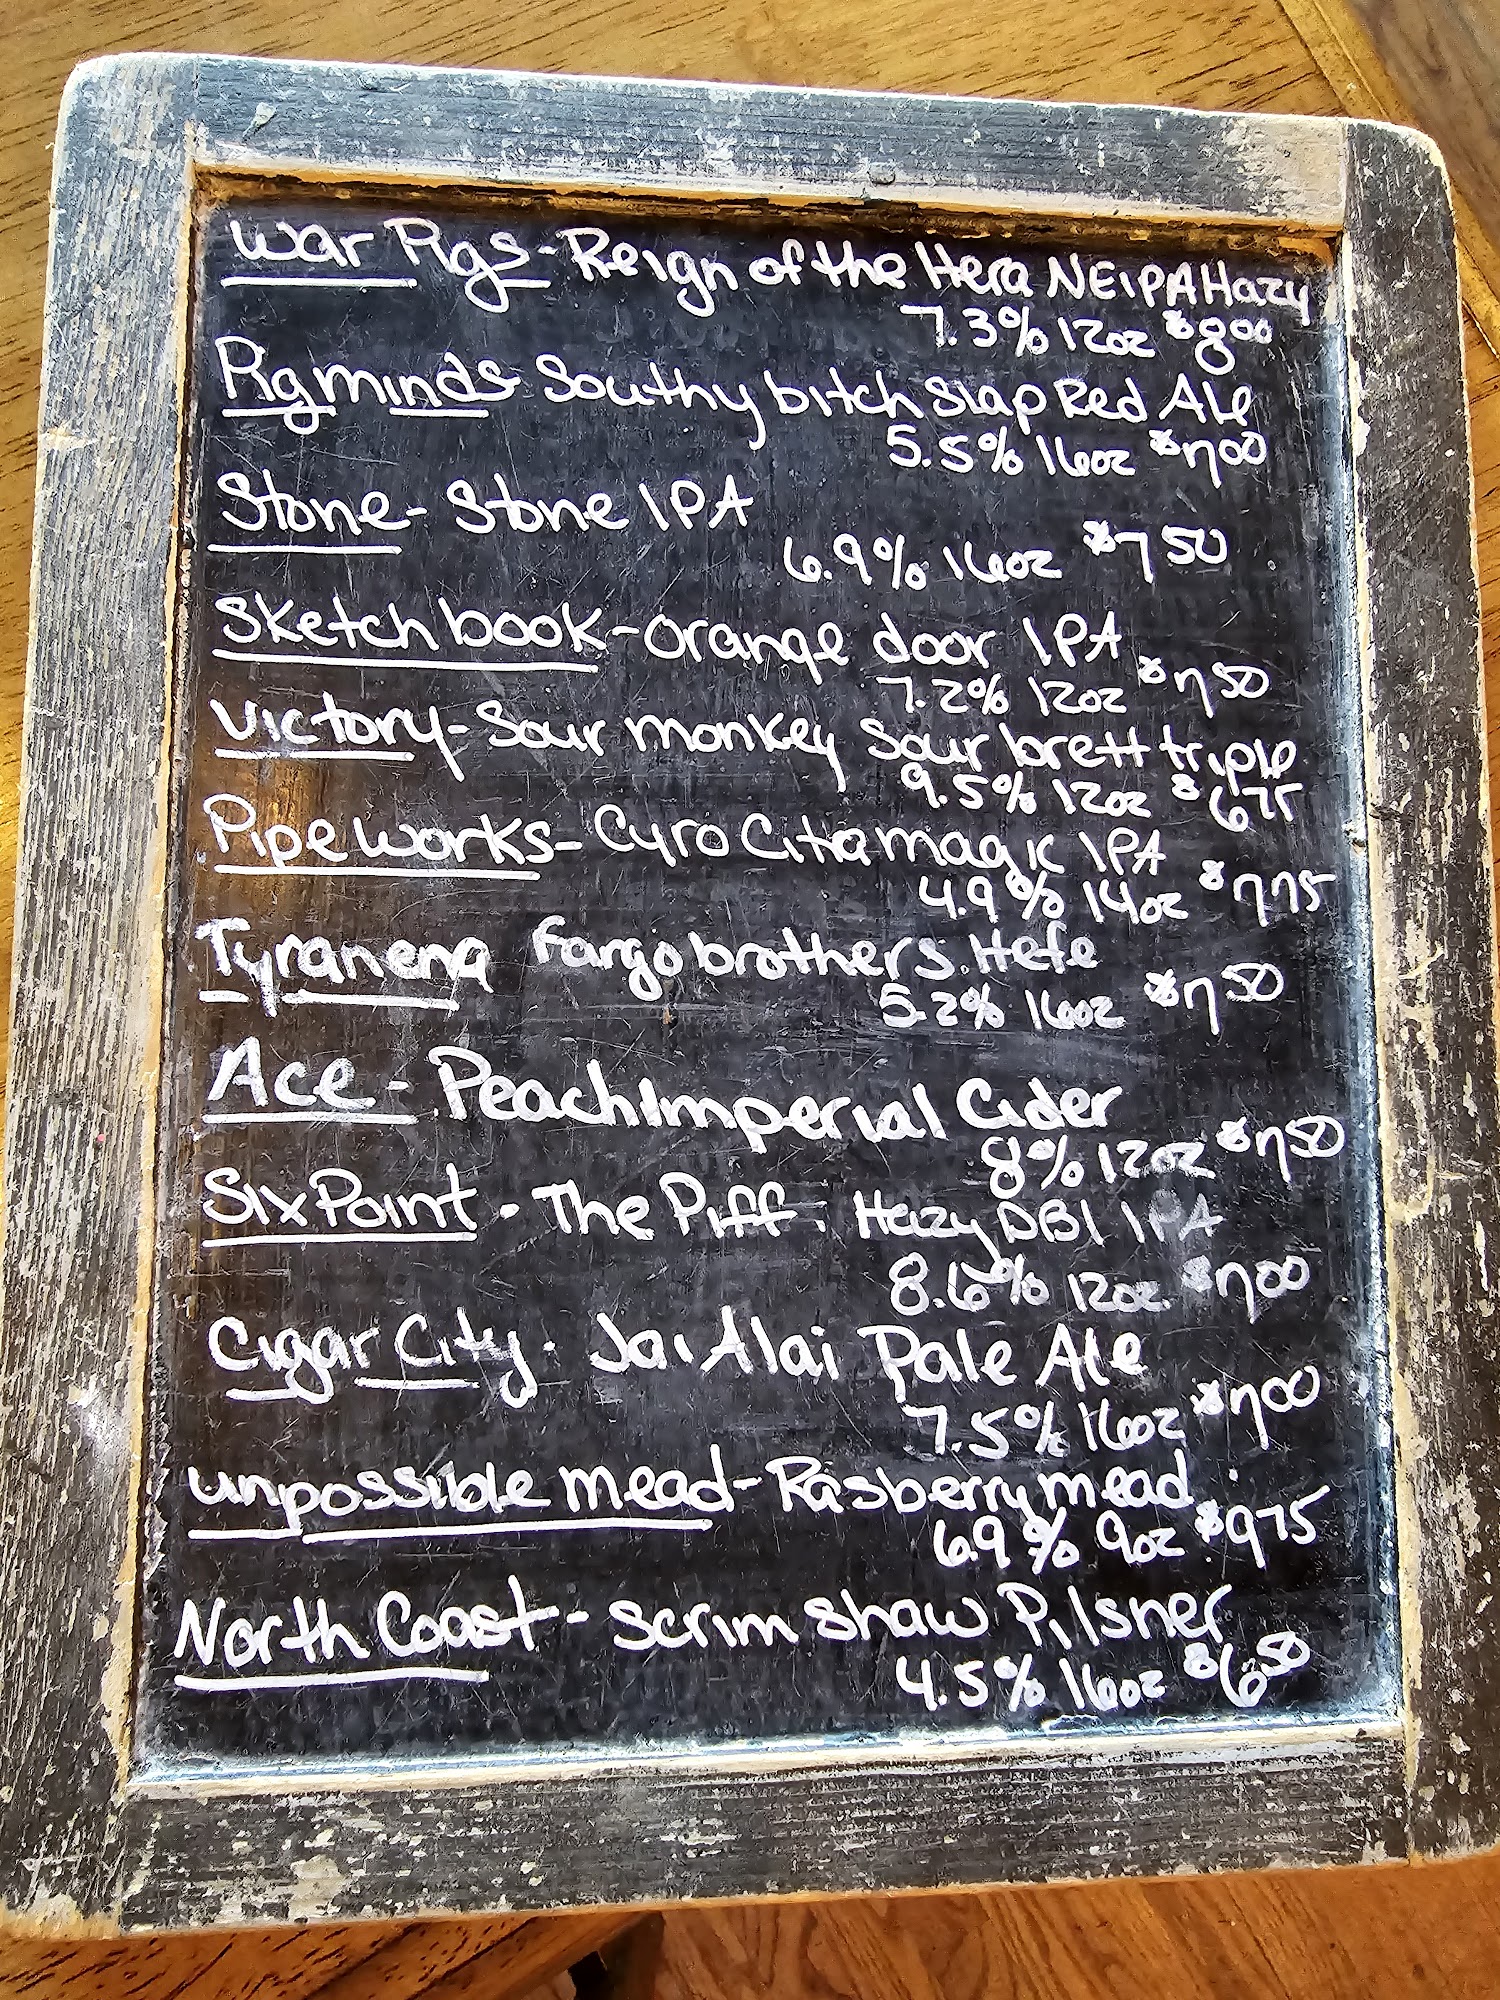 War Pigs - Reign of the Hera NEIPA Hazy
7.3% 12oz $800
Pigminds Southy bitch Slap Red Ale
5.5% 16oz $700
Stone - Stone IPA
6.9% 16oz $750
Sketch book - orange door IPA
7.2% 12oz $750
Victory - Sour monkey Sour brett triple
9.5% 12oz $675
Pipeworks - Cyro Citra magic IPA
4.9% 14oz $775
Tyranena Fargo brothers. Hefe
5.2% 16oz $750
Ace - Peach Imperial Cider
8% 12oz $750
Six Point - The Piff. Hazy DBl IPA
8.6% 12oz. $700
Cigar City. Jai Alai Pale Ale
7.5% 16oz $700
unpossible mead - Rasberry mead
6.9% 9oz $975
North Coast - scrim shaw Pilsner
4.5% 16oz $650